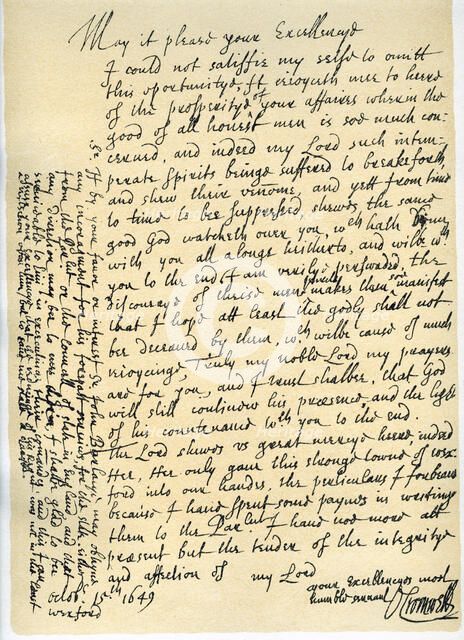 May it please your Excellencye
I could not satisfie my selfe to omitt
this oportunitye, It reioyceth mee to heere
of the prosperitye of your affaires wherein the
good of all honest men is soe much con
cerned, and indeed my Lord such intem
perate Spirits beinge suffered to breake forth
and shew their venome, and yett from time
to time to bee suppressed shewes the same
good God watcheth over you, wch hath binn
with you all alonge hitherto, and wilbe wth
you to the end, I am verilye perswaded, the
discoverye of theise men makes them soe manifest
that I hope att least the godly shall not
bee deceaued by them, wch wilbe cause of much
reioycinge, Truly my noble Lord my prayers
are for you, and I trust shalbee, that God
will still continew his presence, and the light
of his countenance wth you to the end.
The Lord shews us great mercye heere, indeed
Hee, Hee only gave this stronge towne of wex
ford into our handes, the perticulars I forbeare
because I have spent some paynes in writinge
them to the Parlnt I have noe more att
present but the tender of the integritye
and affection of my Lord
your Excellencyes most
humble servant
O Cromwell
Octob. 15th 1649
wexford
Sr If by your favor or interest Sr John Burlace may obtayne
any incoragment for his
from the Parlnt or the Councell of State in England and that
any direction may bee to mee I shalbe glad to bee
serviceable to him in executing their comands, and this I can
assure your Excellencye that